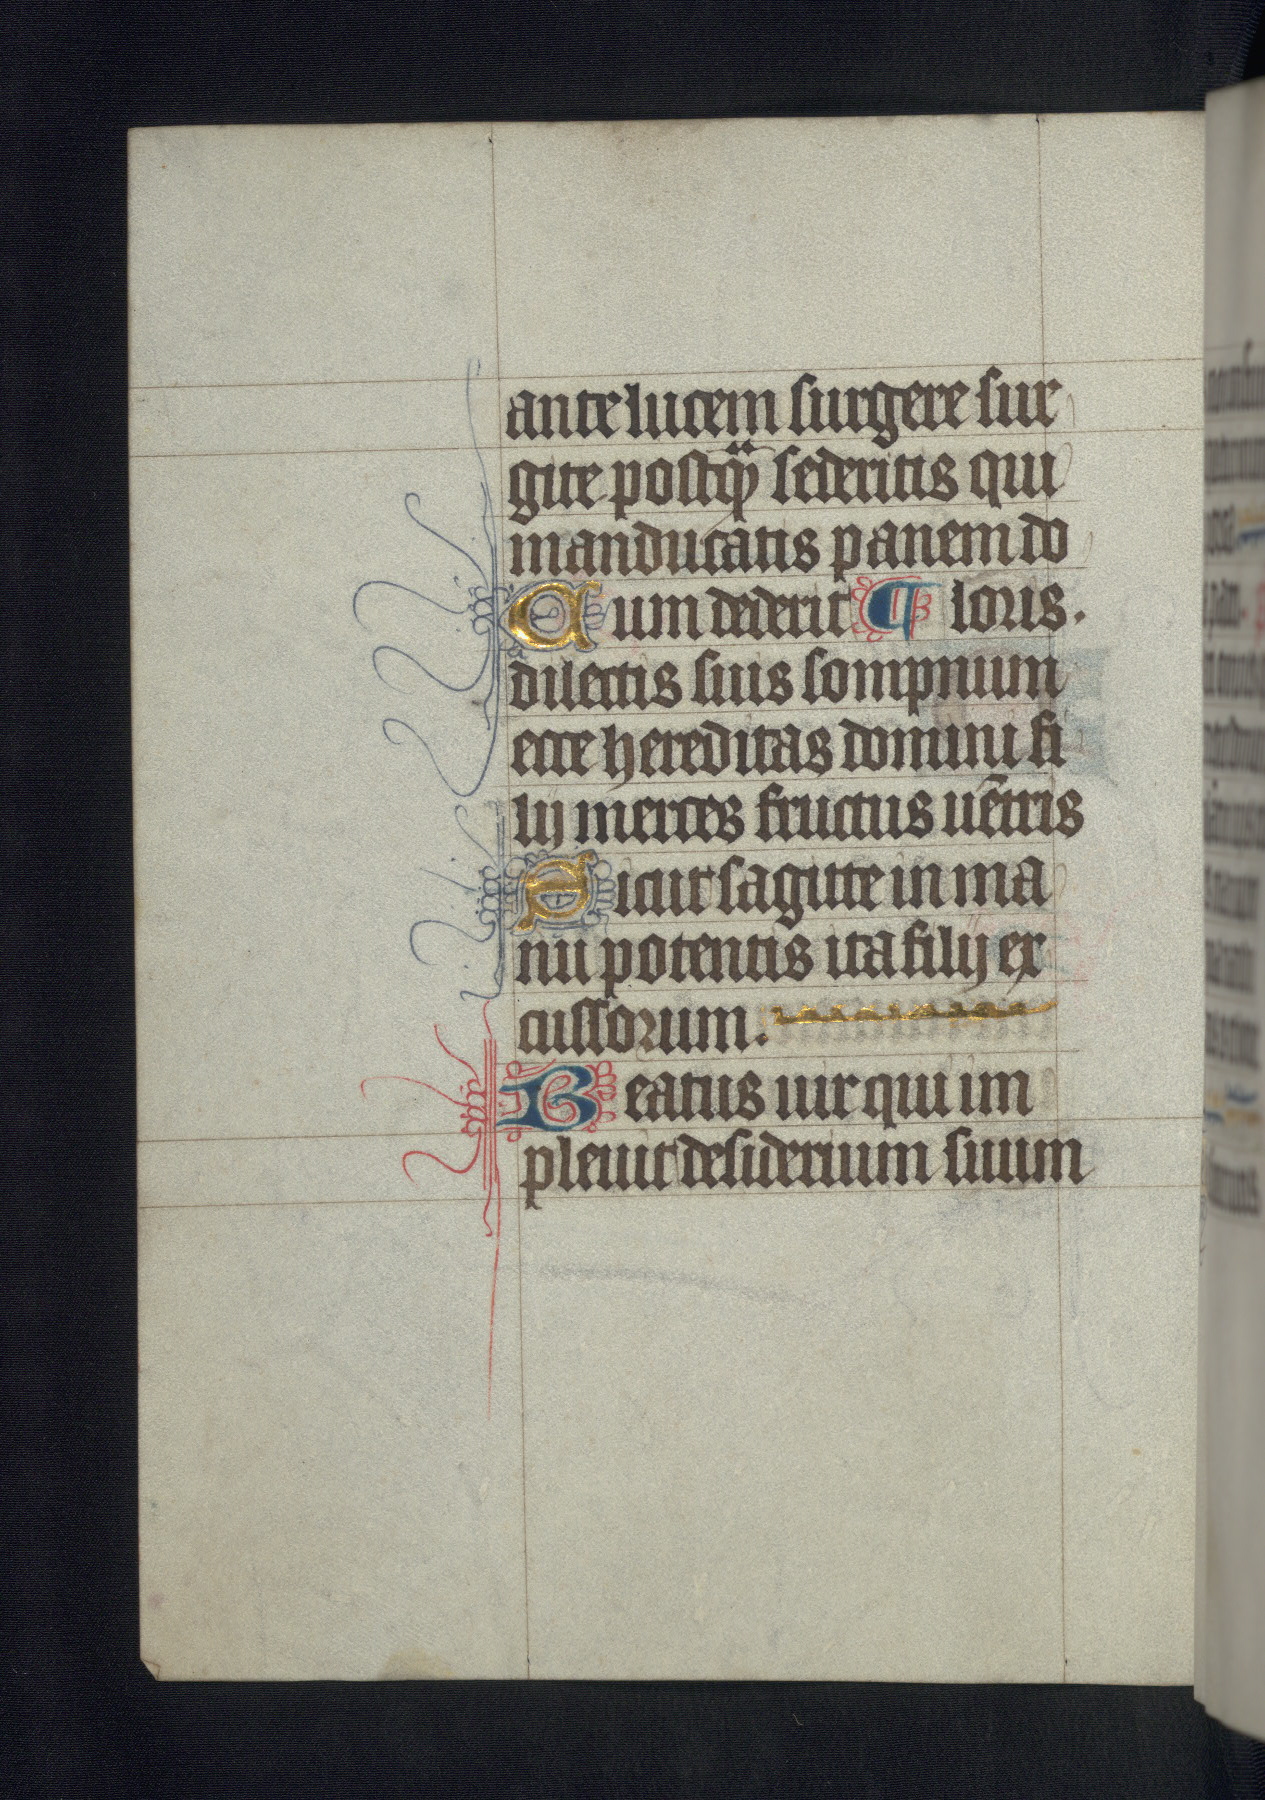 ante lucem surgere sur
gite postq̃ sederitis qui
manducatis panem do
Cum dederit ¶ loris.
dilectis suis sompnium
ecce hereditas domini fi
lij merces fructus uẽtris
Sicut sagitte in ma
nu potentis ita filij ex
cussorum.
Beatus uir qui im
pleuit desiderium suum